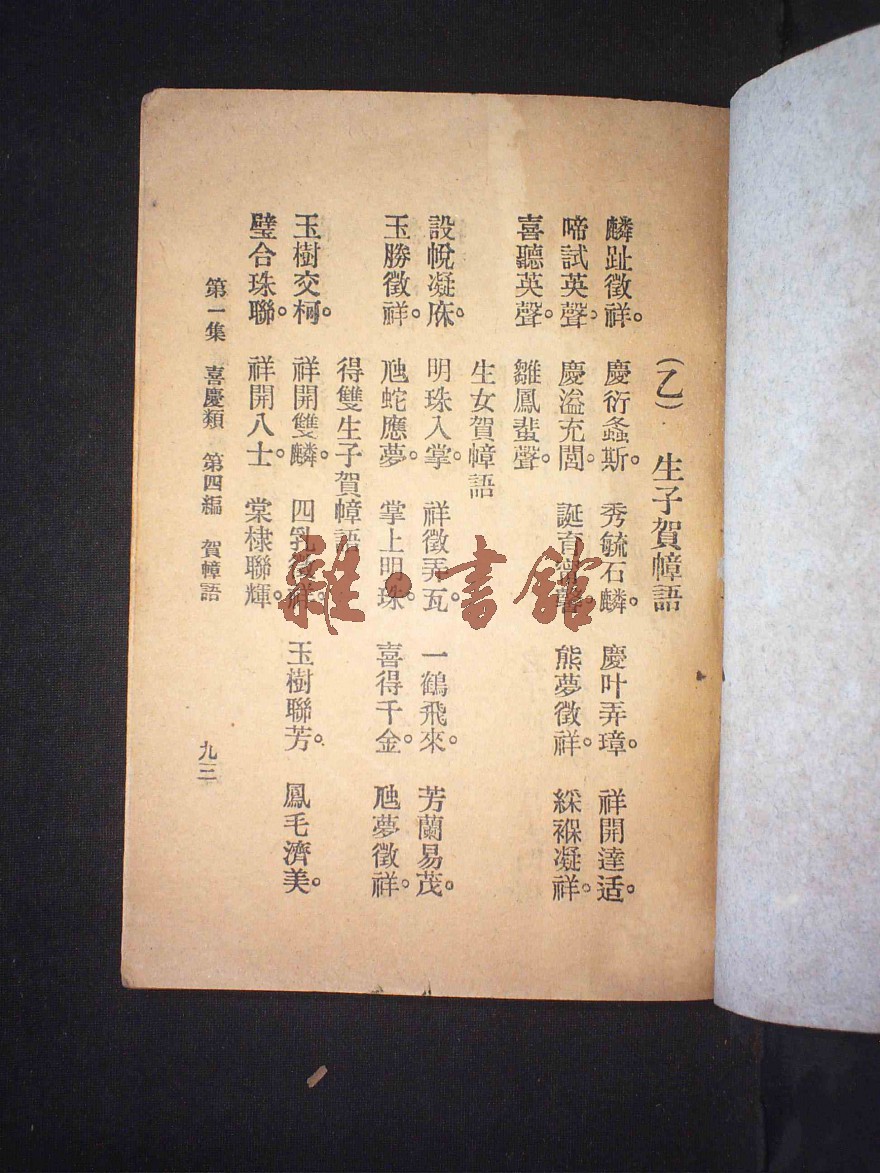 (乙) 生子賀幛語
麟趾徵祥。 慶衍螽斯。 秀毓石麟。 慶叶弄璋。 祥開達适。
啼試英聲。 慶溢充閭。 誕育 熊夢徵祥。 綵褓凝祥。
喜聽英聲。 雛鳳蜚聲。
生女賀幛語
設帨凝庥。 明珠入掌。 祥徵弄瓦。 一鶴飛來。 芳蘭易茂。
玉勝徵祥。 虺蛇應夢。 掌上明珠。 喜得千金。 虺夢徵祥。
得雙生子賀幛語
玉樹交柯。 祥開雙麟。 四乳徵祥。 玉樹聯芳。 鳳毛濟美。
璧合珠聯。 祥開八士。 棠棣聯輝。
第一集 喜慶類 第四編 賀幛語 九三
雜·書館